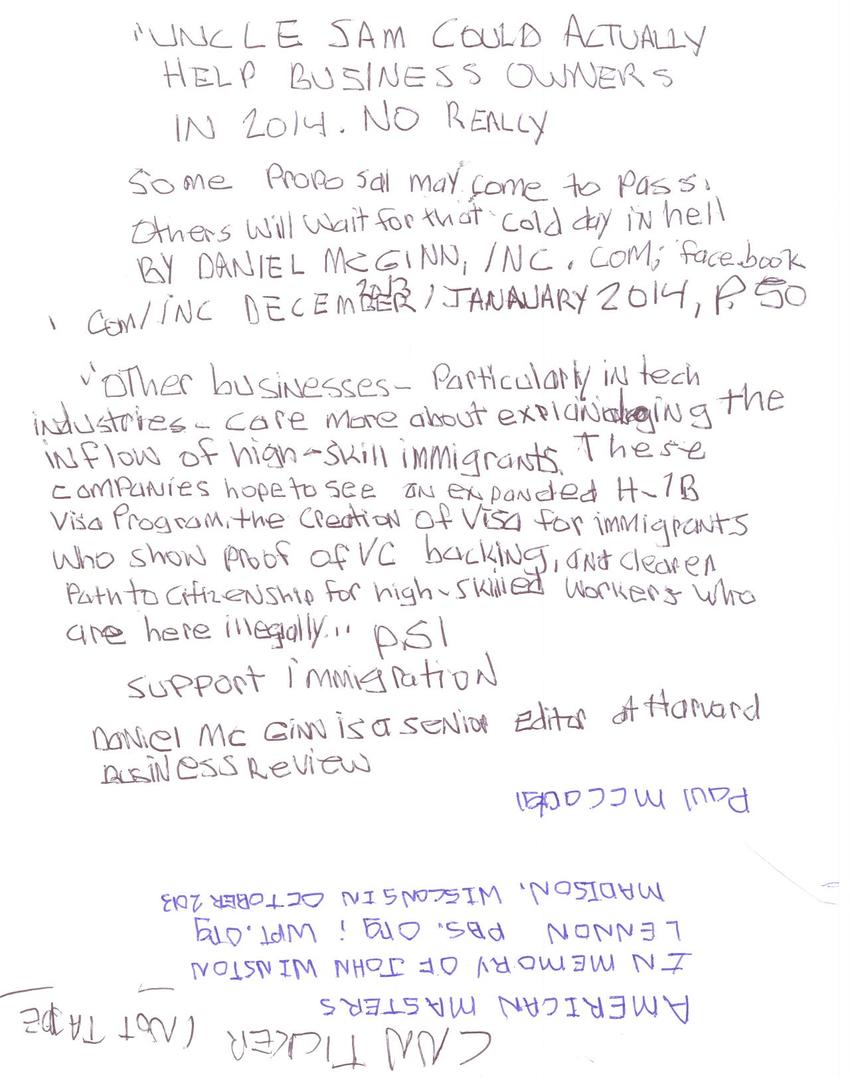 "UNCLE SAM COULD ACTUALLY
HELP BUSINESS OWNERS
IN 2014. NO REALLY
Some Proposal may come to pass.
Others will wait for that cold day in hell
BY DANIEL MCGINN, INC. COM; facebook
Com/INC DECEMBER 2013/JANAUARY 2014, P. 50
"Other businesses- Particularly in tech
industries- care more about the
inflow of high-skill immigrants. These
companies hope to see an expanded H-1B
Visa Program, the creation of Visa for immigrants
who show proof of VC backing, and clearer
Path to citizenship for high-skilled workers who
are here illegally." PSI
support immigration
Daniel McGinn is a senior editor at Harvard
Business Review
Paul
CNN TICKER (NOT TAPE
AMERICAN MASTERS
IN MEMORY OF JOHN WINSTON
LENNON PBS.org; WPT.org
MADISON, WISCONSIN OCTOBER 2013